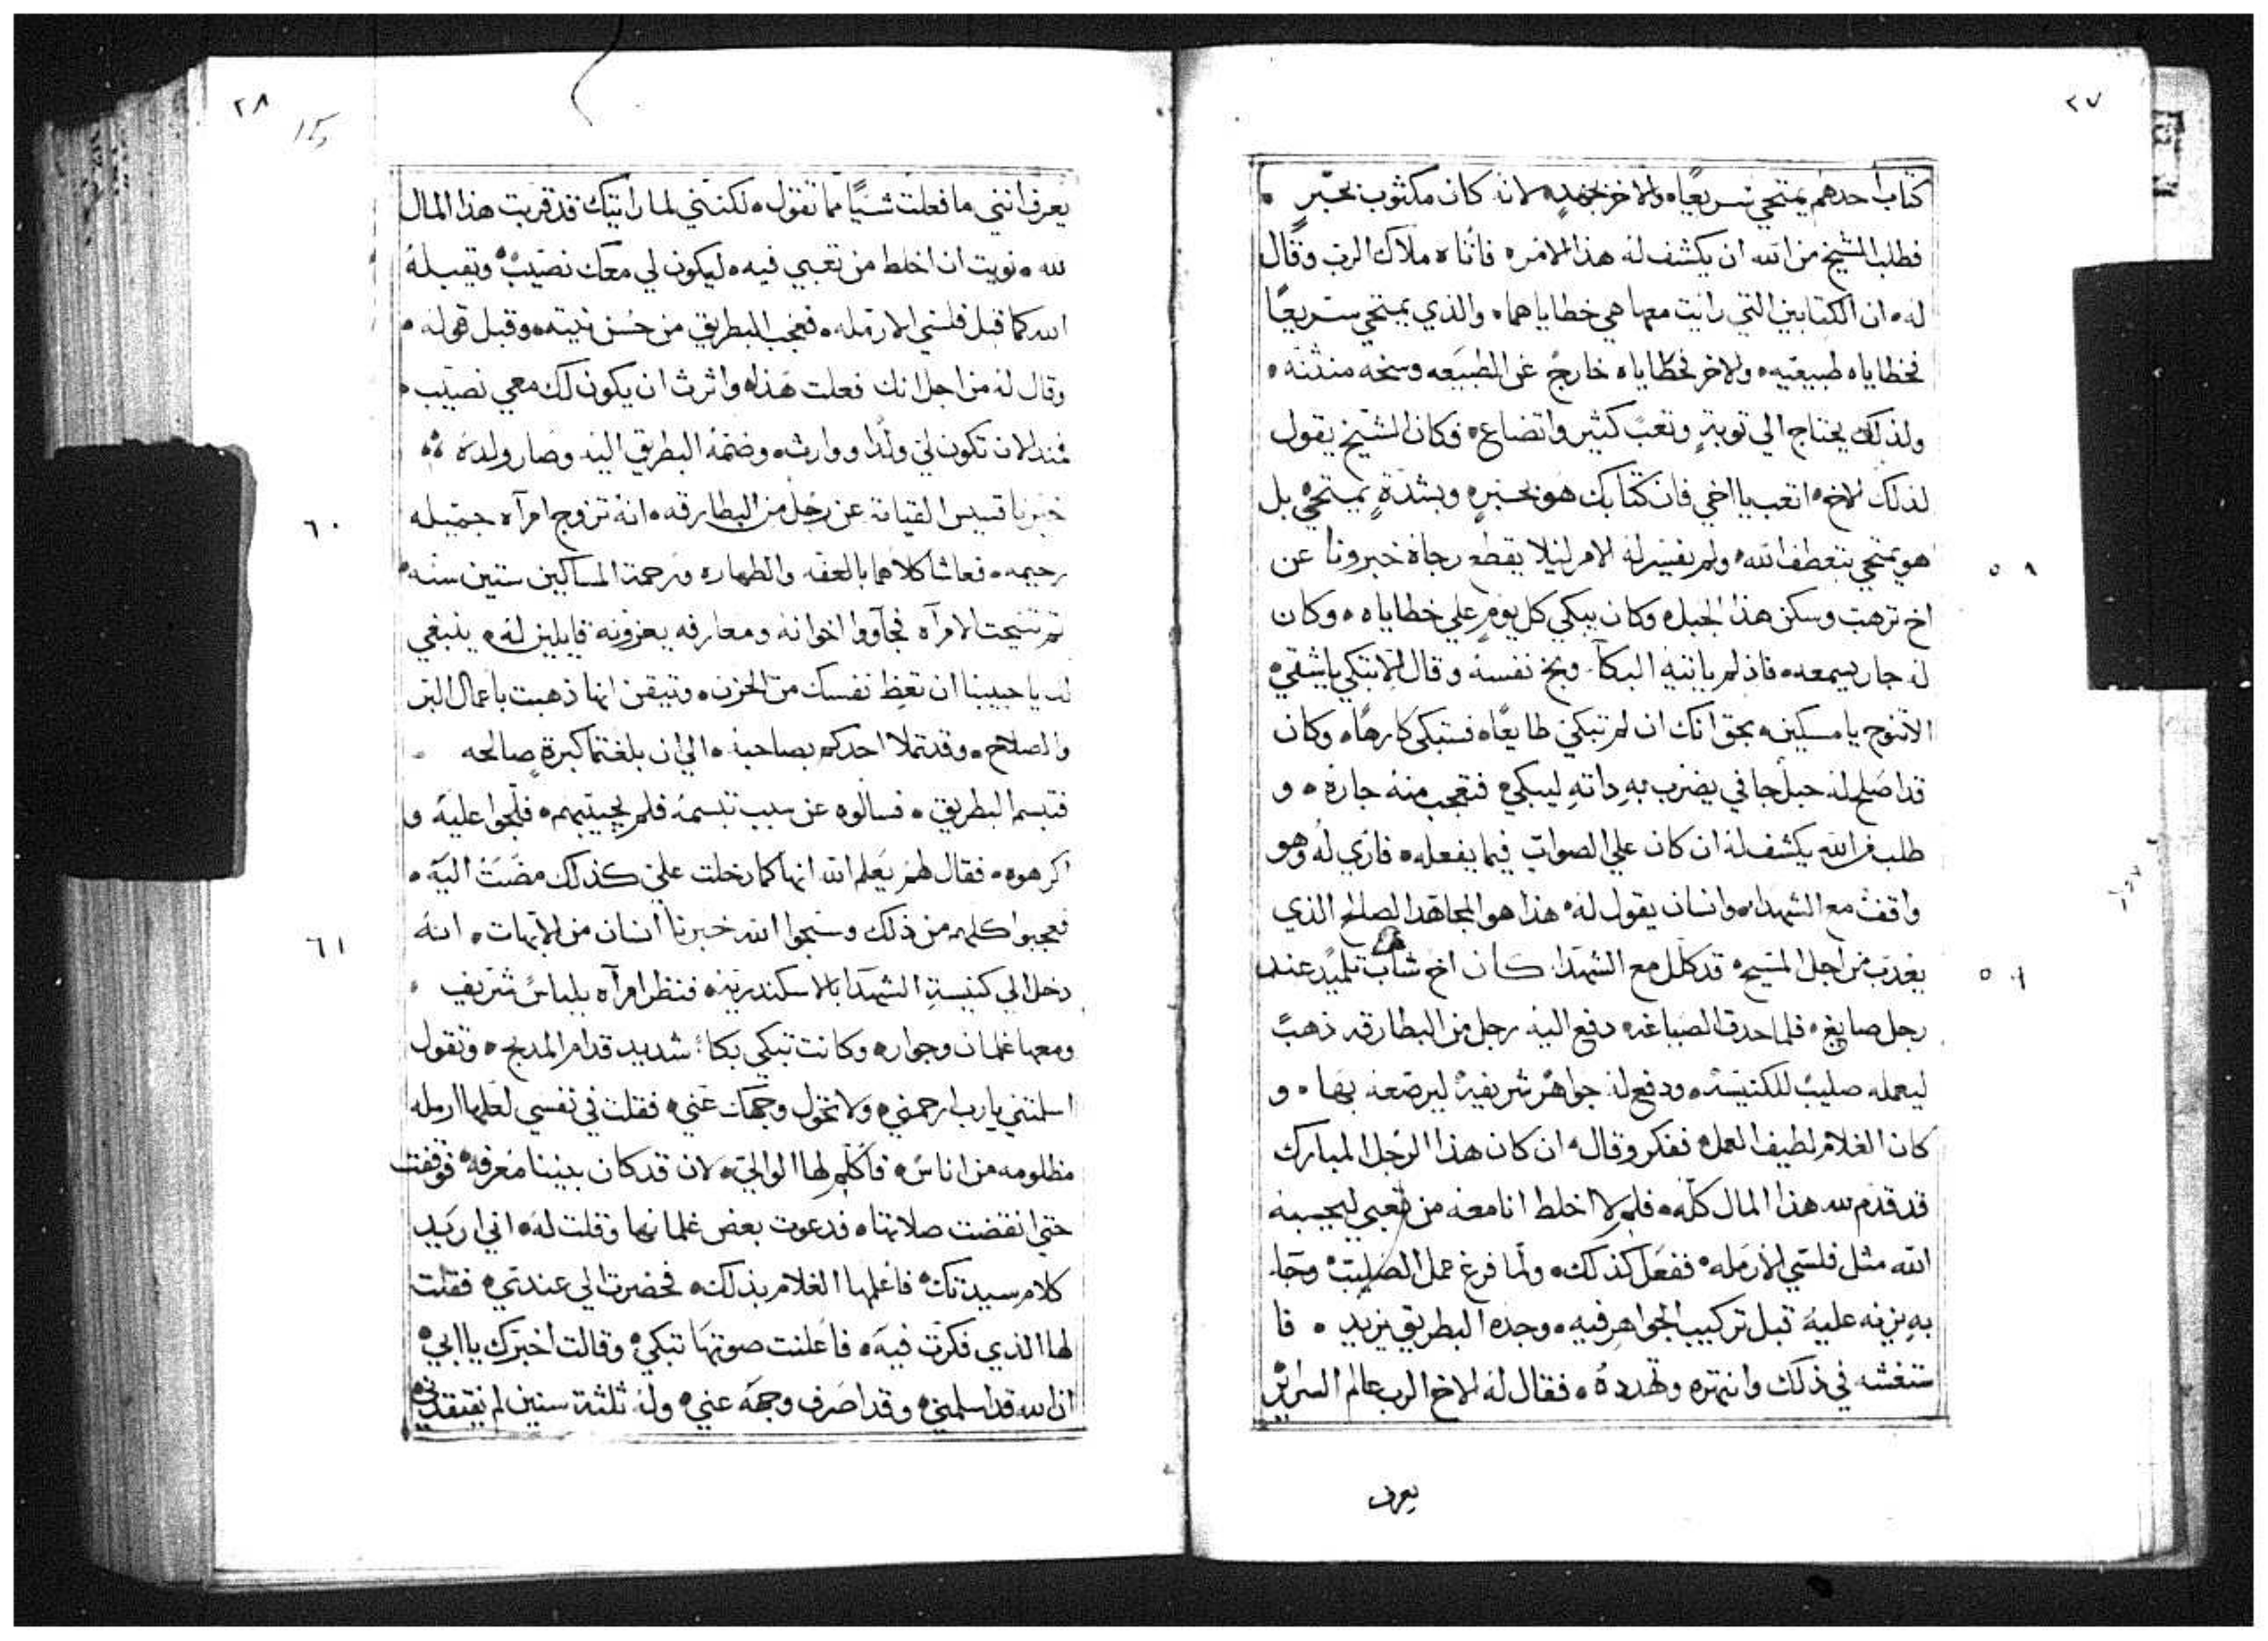 ٢٧
كتاب احدهم يمتحي سريعًا ٥ والاخر بجهدٍ ٥ لانه كان مكتوب بحبرٍ ٥
فطلب الشيخ من الله ان يكشف له هذا الامر ٥ فاتاه ملاك الرب وقال
له ٥ ان الكتابين التي رايت معها هي خطاياهما ٥ والذي يمتحي سريعًا
فخطاياه طبيعيه ٥ والاخر فخطاياه خارج عن الطبيعه وسخه منتنه ٥
ولذلك يحتاج الي توبةٍ وتعب كثير واتضاع ٥ فكان الشيخ يقول
لذلك الاخ ٥ اتعب يا اخي فان كتابك هو بحبرٍ وبشدةٍ يمتحي ٥ بل
هو يمتحي بتعطف الله ٥ ولم يفسر له الامر ليلا يقطع رجاه خبرونا عن
٥٨
اخ ترهب وسكن هذا الجبل ٥ وكان يبكي كل يومٍ علي خطاياه ٥ وكان
له جار يسمعه ٥ فاذ لم ياتيه البكآ وبخ نفسه وقال الا تبكي يا شقي ٥
الا تنوح يا مسكين ٥ بحق انك ان لم تبكي طايعًا ٥ فستبكي كارهًا ٥ وكان
قد اصلح له حبل جافي يضرب به داته ليبكي ٥ فتعجب منه جاره ٥ و
طلب من الله يكشف له ان كان علي الصواب فيما يفعله ٥ فاري له وهو
واقف مع الشهدا ٥ وانسان يقول له ٥ هذا هو المجاهد الصالح الذي
يعدب من اجل المسيح ٥ قد كلل مع الشهدا كان اخ شاب تلميد عند
٥٩
رجل صايغ ٥ فلما حدق الصياغه دفع اليه رجل من البطارقه ذهبً
ليعمله صليب للكنيسة ٥ ودفع له جواهر شريفة ليرصعه بها ٥ و
كان الغلام لطيف العمل ٥ ففكر وقال ٥ ان كان هذا الرجل المبارك
قد قدم لله هذا المال كله ٥ فلم لا اخلط انا معه من تعبي ليحسبه
الله مثل فلسي الارمله ٥ ففعل كذلك ٥ ولما فرغ عمل الصليب ٥ وجا
به يزنه عليه قبل تركيب الجواهر فيه ٥ وجده البطريق يزيد ٥ فا
ستغشه في ذلك وانتهره وتهدده ٥ فقال له الاخ الرب عالم السراير
يعرف
٢٨
يعرف انني ما فعلت شيًا مما تقول ٥ لكنني لما رايتك قد قربت هذا المال
لله ٥ نويت ان اخلط من تعبي فيه ٥ ليكون لي معك نصيب ٥ ويقبله
الله كما قبل فلسي الارمله ٥ فعجب البطريق من حسن نيته ٥ وقبل قوله ٥
وقال له من اجل انك فعلت هذا ٥ واثرت ان يكون لك معي نصيب ٥
فمند الان تكون لي ولدًا ووارث ٥ وضمه البطريق اليه وصار ولده ٥
خبرنا قسيس القيامة عن رجل من البطارقه ٥ انه تزوج امرآه جميله
٦٠
رحيمه ٥ فعاشا كلاهما بالعفه والطهاره ورحمة المساكين ستين سنه ٥
ثم تنيحت الامرآه فجآووا اخوانه ومعارفه يعزونه قايلين له ٥ ينبغي
لك يا حبيبنا ان تعظ نفسك من الحزن ٥ وتيقن انها ذهبت باعمال البر
والصلاح ٥ وقد تملا احدكم بصاحبه ٥ الي ان بلغتما كبرةٍ صالحه
فتبسم البطريق ٥ فسالوه عن سبب تبسمه فلم يجيبهم ٥ فلجوا عليه و
اكرهوه ٥ فقال لهم يعلم الله انها كما دخلت علي كذلك مضت اليه ٥
فعجبوا كلهم من ذلك وسبحوا الله خبرنا انسان من الابهات ٥ انه
٦١
دخل الي كنيسة الشهدا بالاسكندريه ٥ فنظر امرآه بلباس شريف ٥
ومعها غلمان وجوار ٥ وكانت تبكي بكاءً شديد قدام المدبح ٥ وتقول
اسلمتني يا رب ارحمني ٥ ولا تحول وجهك عني ٥ فقلت في نفسي لعلها ارمله
مظلومه من اناس ٥ فاكلم لها الوالي ٥ لان قد كان بيننا معرفه ٥ فوقفت
حتي انقضت صلاتها ٥ فدعوت بعض غلمانها وقلت له ٥ اني اريد
كلام سيدتك ٥ فاعلمها الغلام بذلك ٥ فحضرت الي عندي ٥ فقلت
لها الذي فكرت فيه ٥ فاعلنت صوتها تبكي ٥ وقالت اخبرك يا ابي ٥
ان الله قد اسلمني ٥ وقد اصرف وجهه عني ٥ وله ثلثة سنين لم يفتقدني ٥